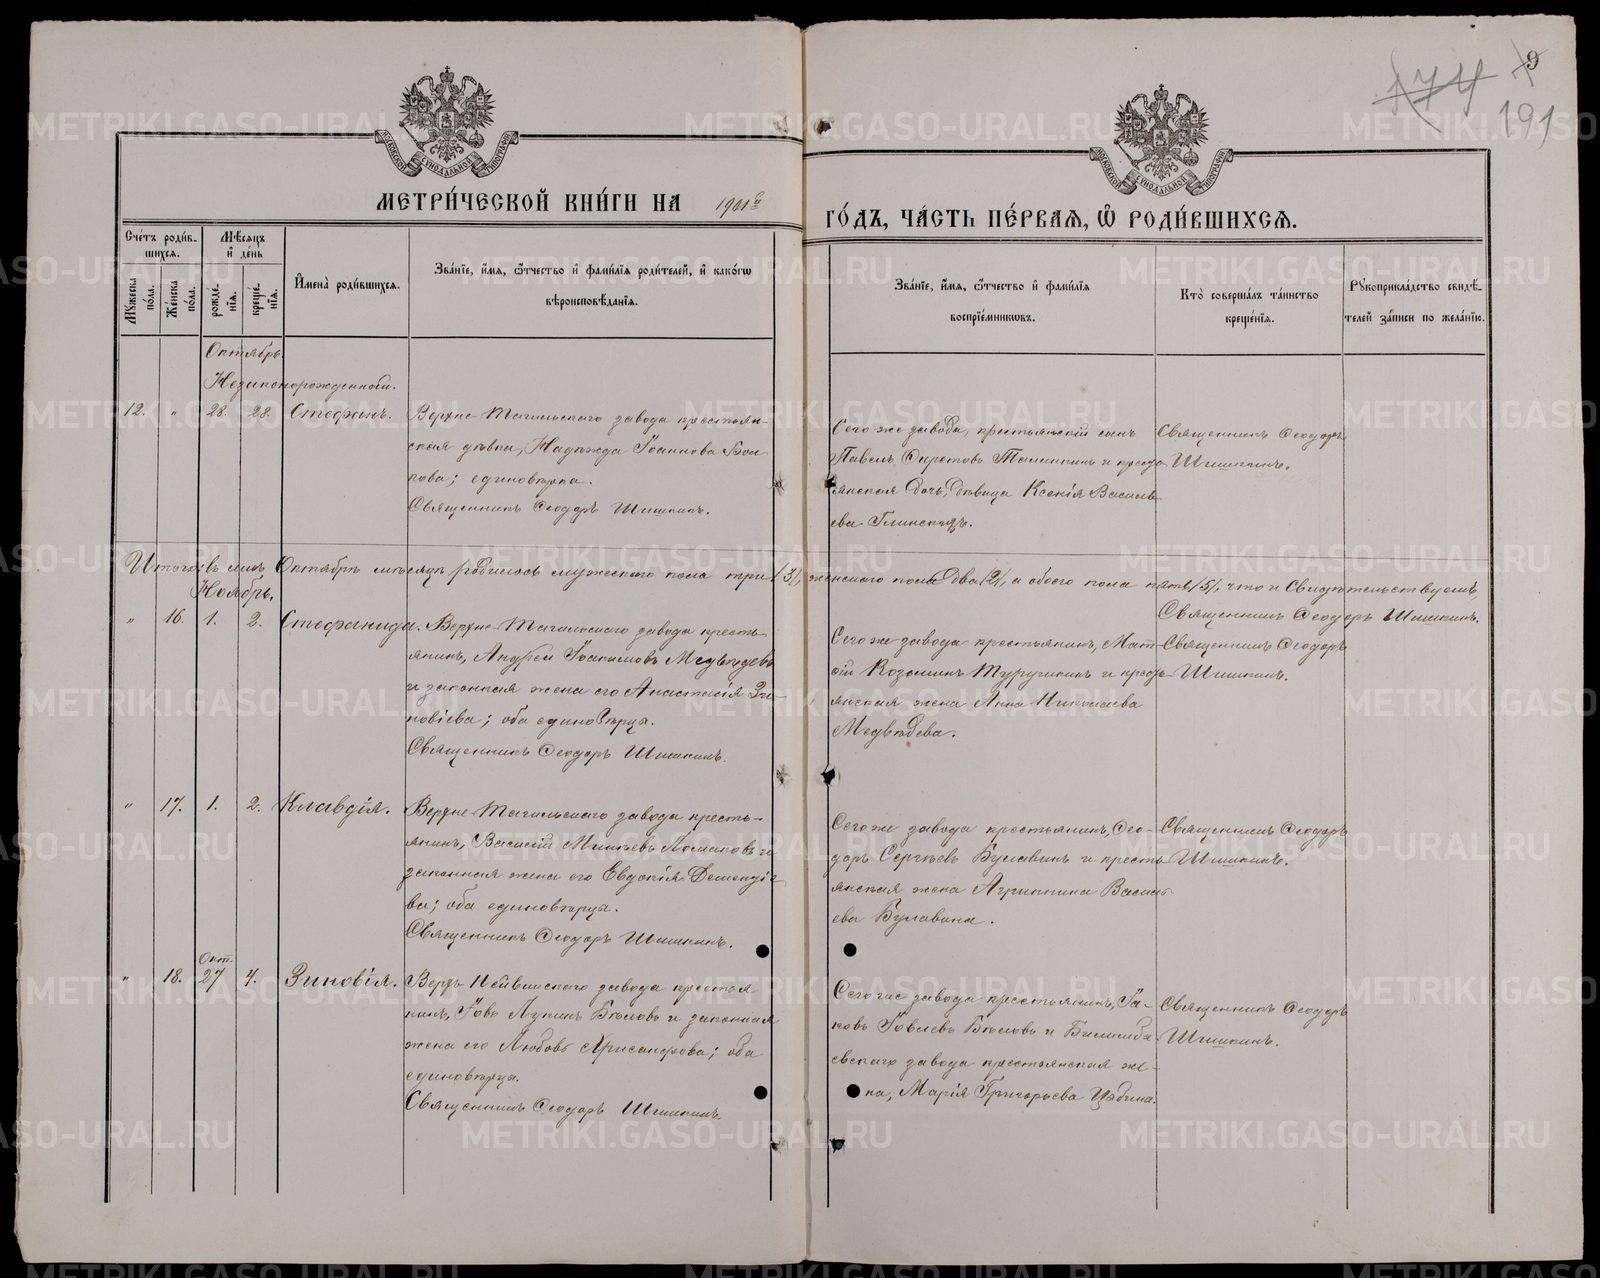 9
174
191
МОСКОВСКОЙ СѴНОДАЛЬНОЙ ТИПОГРАФІИ
МОСКОВСКОЙ СѴНОДАЛЬНОЙ ТИПОГРАФІИ
МЕТРИ́ЧЕСКОЙ КНИ́ГИ НА 1901й
ГО́ДЪ, ЧА́СТЬ ПЕ́РВАЯ, Ѿ РОДИ́ВШИХСЯ.
Сче́тъ роди́в-
шихся.
Мѣ́сяцъ
и҆ де́нь
Мꙋ́жеска по́ла.
Же́нска по́ла.
рожде́-
нїѧ.
креще́-
нїѧ.
И҆мена̀ роди́вшихся.
Зва́нїе, и҆́мѧ, ѻ҆́тчество и҆ фами́лїѧ роди́телей, и҆ како́гѡ
вѣроисповѣ́данїѧ.
Зва́нїе, и҆́мѧ, ѻ҆́тчество и҆ фами́лїѧ
воспрїе́мниковъ.
Кто̀ соверша́лъ та́инство
креще́нїѧ.
Рꙋкоприкла́дство свидѣ́-
телей за́писи по жела́нїю.
Октябрь.
Незаконорожденный.
12. " 28. 28. Стефанъ.
Верхне-Тагильскаго завода крестьян-
ская дѣвка, Надежда Іоаннова
кова; единовѣрка.
Священникъ Ѳеодоръ Шишкинъ.
Сего же завода, крестьянскій сынъ
Павелъ и кресть-
янская дочь, дѣвица Ксенія Василь-
ева
Священникъ Ѳеодоръ
Шишкинъ.
Итого въ Октябрѣ мѣсяцѣ родилось мужескаго пола три /3/, женскаго пола два /2/, а обоего пола пять /5/, что и свидѣтельствуемъ,
Священникъ Ѳеодоръ Шишкинъ.
Ноябрь.
" 16. 1. 2. Стефанида.
Верхне-Тагильскаго завода кресть-
янинъ, Андрей Іоакимовъ Медвѣдевъ
и законная жена его Анастасія Зи-
новіева; оба единовѣрцы.
Священникъ Ѳеодоръ Шишкинъ.
Сего же завода крестьянинъ, Мат-
ѳій Козьминъ и кресть-
янская жена Анна Николаева
Медвѣдева.
Священникъ Ѳеодоръ
Шишкинъ.
" 17. 1. 2. Клавдія.
Верхне-Тагильскаго завода кресть-
янинъ, Василій и
законная жена его Евдокія Дементіе-
ва; оба единовѣрцы.
Священникъ Ѳеодоръ Шишкинъ.
Сего же завода крестьянинъ, Ѳео-
доръ Сергѣевъ Булавинъ и кресть-
янская жена Агриппина Василь-
ева Булавина.
Священникъ Ѳеодоръ
Шишкинъ.
Окт.
" 18. 27 4. Зиновія.
Верхъ Нейвинскаго завода крестья
нинъ, Іовъ Лукинъ Бѣловъ и законная
жена его Любовь Хрисанфова; оба
единовѣрцы.
Священникъ Ѳеодоръ Шишкинъ.
Сего же завода крестьянинъ, Іа-
ковъ Іовлевъ Бѣловъ и Билимба
евскаго завода крестьянская же-
на, Марія Григорьева
Священникъ Ѳеодоръ
Шишкинъ.
METRIKI.GASO-URAL.RU